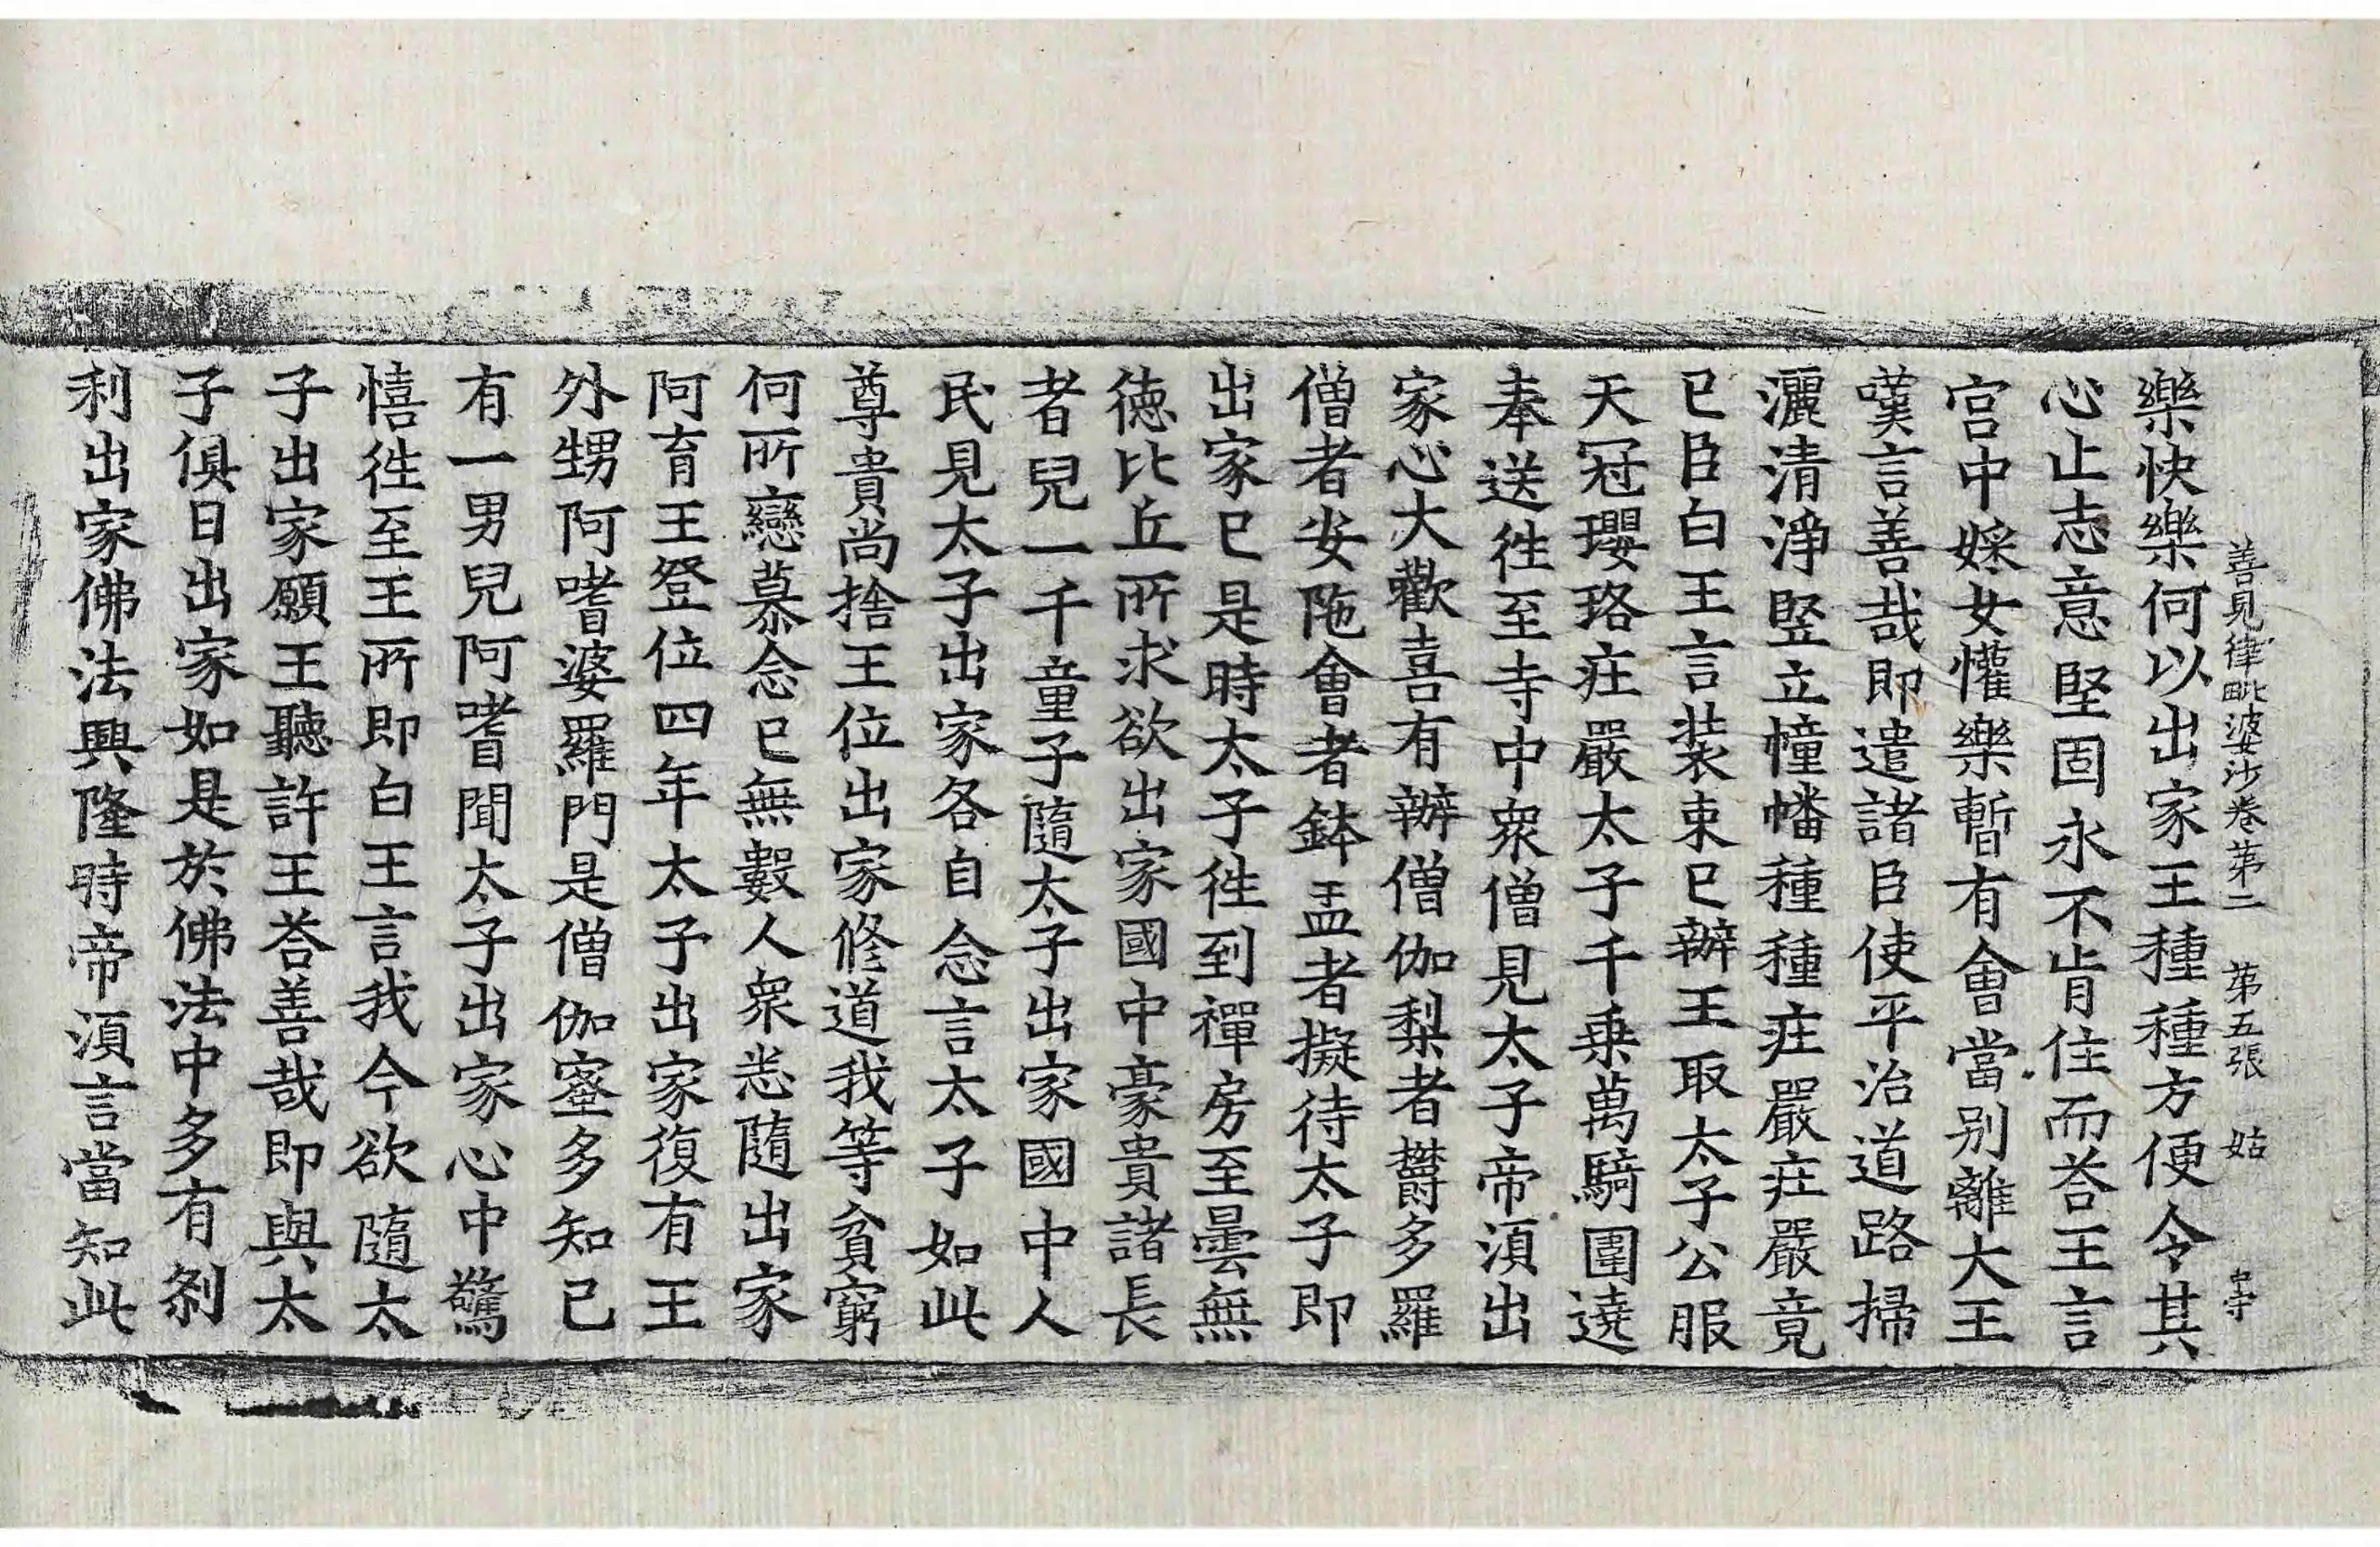 善見律毗婆沙卷苐二　苐五張　姑
樂快樂何以出家王種種方便令其
心止志意堅固永不肯住而荅王言
宫中婇女懽樂暫有會當别離大王
嘆言善哉即遣諸臣使平治道路掃
灑清淨竪立幢幡種種庄嚴庄嚴竟
已臣白王言装束已辦王取太子公服
天冠瓔珞庄嚴太子千乗萬騎圍遶
奉送徃至寺中衆僧見太子帝湏出
家心大歡喜有辦僧伽梨者欝多羅
僧者安陁會者鉢盂者擬待太子即
出家已是時太子徃到禪房至曇無
徳比丘所求欲出家國中豪貴諸長
者兒一千童子隨太子出家國中人
民見太子出家各自念言太子如此
尊貴尚捨王位出家修道我等貧窮
何所戀慕念已無數人衆悉隨出家
阿育王登位四年太子出家復有王
外甥阿嗜婆羅門是僧伽蜜多知已
有一男兒阿嗜聞太子出家心中驚
憘徃至王所即白王言我今欲隨太
子出家願王聽許王荅善哉即與太
子俱日出家如是於佛法中多有刹
利出家佛法興隆時帝湏言當知此